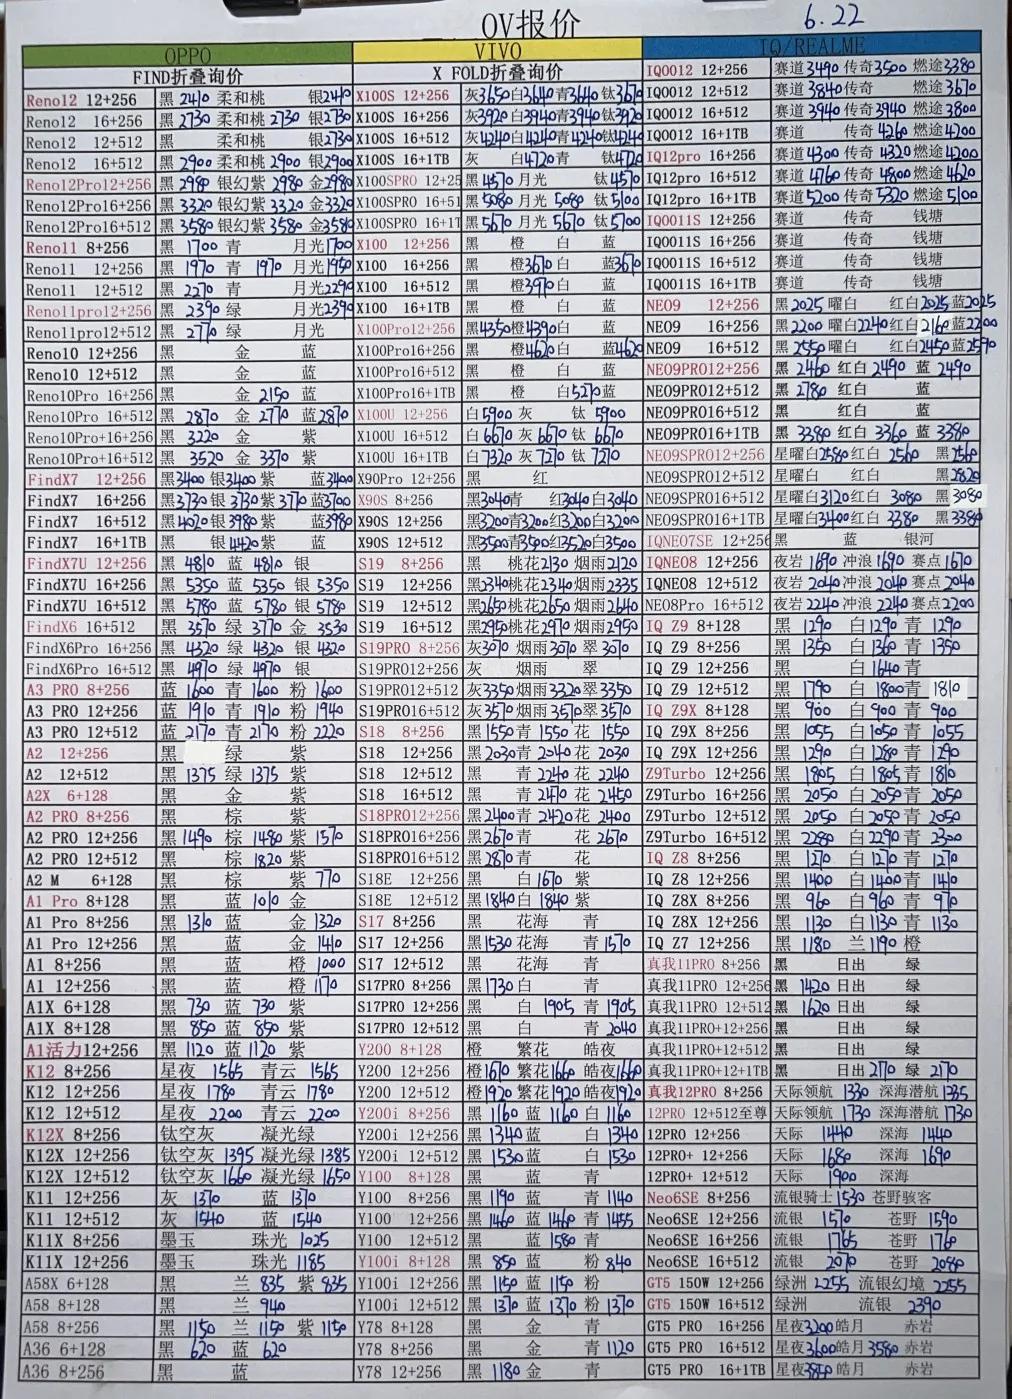 OV报价 6.22
OPPO VIVO IQ/REALME
FIND折叠询价 X FOLD折叠询价 IQ0012 12+256 赛道3490 传奇3500 燃途3380
Reno12 12+256 黑 2410 柔和桃 银2410 X100S 12+256 灰3650白3640青3640钛3670 IQ0012 12+512 赛道3840传奇 燃途3670
Reno12 16+256 黑 2730 柔和桃 2730 银2730 X100S 16+256 灰3920白3940青3940钛3920 IQ0012 16+512 赛道3940传奇3940燃途3800
Reno12 12+512 黑 柔和桃 银2730 X100S 16+512 灰4240白4240青4240钛4240 IQ0012 16+1TB 赛道 传奇 4260燃途4200
Reno12 16+512 黑 2900 柔和桃 2900 银2900 X100S 16+1TB 灰 白4720青 钛4720 IQ12pro 16+256 赛道4300 传奇 4320燃途4200
Reno12Pro12+256 黑 2980 银幻紫 2980 金2980 X100SPRO 12+25 黑 4570 月光 钛4570 IQ12pro 16+512 赛道4760 传奇 4800燃途4620
Reno12Pro16+256 黑 3320 银幻紫 3320 金3320 X100SPRO 16+51 黑 5080 月光 5080 钛5100 IQ12pro 16+1TB 赛道5200 传奇 5320 燃途5100
Reno12Pro16+512 黑 3580 银幻紫 3580 金3580 X100SPRO 16+1T 黑 5670 月光 5670 钛5700 IQ0011S 12+256 赛道 传奇 钱塘
Reno11 8+256 黑 1700 青 月光1700 X100 12+256 黑 橙 白 蓝 IQ0011S 16+256 赛道 传奇 钱塘
Reno11 12+256 黑 1970 青 1970 月光1950 X100 16+256 黑 橙3670白 蓝3670 IQ0011S 16+512 赛道 传奇 钱塘
Reno11 12+512 黑 2270 青 月光2290 X100 16+512 黑 橙3970白 蓝 IQ0011S 16+1TB 赛道 传奇 钱塘
Reno11pro12+256 黑 2390 绿 月光2390 X100 16+1TB 黑 橙 白 蓝 NEO9 12+256 黑2025 曜白 红白2025蓝2025
Reno11pro12+512 黑 2770 绿 月光 X100Pro12+256 黑4350橙4390白 蓝 NEO9 16+256 黑2200 曜白2240红白2160蓝2200
Reno10 12+256 黑 金 蓝 X100Pro16+256 黑 橙4620白 蓝4620 NEO9 16+512 黑2550曜白 红白2450蓝2590
Reno10 12+512 黑 金 蓝 X100Pro16+512 黑 橙 白 蓝 NEO9PRO12+256 黑 2460 红白 2490 蓝 2490
Reno10Pro 16+256 黑 金 2150 蓝 X100Pro16+1TB 黑 橙 白5270蓝 NEO9PRO12+512 黑 2780 红白 蓝
Reno10Pro 16+512 黑 2870 金 2770 蓝2870 X100U 12+256 白5900 灰 钛 5900 NEO9PRO16+512 黑 红白 蓝
Reno10Pro+16+256 黑 3220 金 紫 X100U 16+512 白 6670 灰 6670 钛 6670 NEO9PRO16+1TB 黑 3380 红白 3360 蓝 3380
Reno10Pro+16+512 黑 3520 金 3370 紫 X100U 16+1TB 白7320 灰 7270 钛 7270 NEO9SPRO12+256 星曜白2580红白 2560 黑2560
FindX7 12+256 黑3400 银3400 紫 蓝3400 X90Pro 12+256 黑 红 NEO9SPRO12+512 星曜白 红白 黑2820
FindX7 16+256 黑3730 银3730紫 3770 蓝3700 X90S 8+256 黑3040青 红3040白3040 NEO9SPRO16+512 星曜白3120红白 3080 黑3080
FindX7 16+512 黑4020银3980 紫 蓝3980 X90S 12+256 黑3200青3200红3200白3200 NEO9SPRO16+1TB 星曜白3400红白 3380 黑3380
FindX7 16+1TB 黑 银4420紫 蓝 X90S 12+512 黑3500青3500红3520白3500 IQNEO7SE 12+256 黑 蓝 银河
FindX7U 12+256 黑 4810 蓝 4810 银 S19 8+256 黑 桃花2130 烟雨2120 IQNEO8 12+256 夜岩 1690 冲浪 1690 赛点 1670
FindX7U 16+256 黑 5350 蓝 5350 银 5350 S19 12+256 黑2340桃花2340烟雨2335 IQNEO8 12+512 夜岩 2040 冲浪 2040 赛点 2040
FindX7U 16+512 黑 5780 蓝 5780 银 5780 S19 12+512 黑2650桃花2650烟雨2640 NEO8Pro 16+512 夜岩 2240 冲浪 2240赛点2200
FindX6 16+512 黑 3570 绿 3770 金 3530 S19 16+512 黑2950桃花2970烟雨2950 IQ Z9 8+128 黑 1290 白1290 青 1290
FindX6Pro 16+256 黑 4320 绿 4320 银 4320 S19PRO 8+256 灰3070 烟雨3070 翠 3070 IQ Z9 8+256 黑 1350 白 1360 青 1350
FindX6Pro 16+512 黑 4970 绿 4970 银 S19PRO12+256 灰 烟雨 翠 IQ Z9 12+256 黑 白 1640青
A3 PRO 8+256 蓝 1600 青 1600 粉 1600 S19PRO12+512 灰3350烟雨3320翠3350 IQ Z9 12+512 黑 1790 白 1800青 1810
A3 PRO 12+256 蓝 1910 青 1910 粉 1940 S19PRO16+512 灰3570烟雨3570翠3570 IQ Z9X 8+128 黑 900 白 900 青 900
A3 PRO 12+512 蓝 2170 青 2170 粉 2220 S18 8+256 黑1550青 1550 花 1550 IQ Z9X 8+256 黑 1055 白 1050 青 1055
A2 12+256 黑 绿 紫 S18 12+256 黑2030青 2040 花 2030 IQ Z9X 12+256 黑 1290 白 1280青 1290
A2 12+512 黑 1375 绿 1375 紫 S18 12+512 黑 青 2240 花 2240 Z9Turbo 12+256 黑 1805 白 1805青 1810
A2X 6+128 黑 金 紫 S18 16+512 黑 青 2470 花 2450 Z9Turbo 16+256 黑 2050 白 2050青 2050
A2 PRO 8+256 黑 棕 紫 S18PRO12+256 黑2400青 2420花 2400 Z9Turbo 12+512 黑 2050 白 2050 青 2050
A2 PRO 12+256 黑1490 棕 1480 紫 1570 S18PRO16+256 黑2670青 花 2670 Z9Turbo 16+512 黑 2280 白2290青 2300
A2 PRO 12+512 黑 棕 1820 紫 S18PRO16+512 黑2870青 花 IQ Z8 8+256 黑 1270 白1270青 1270
A2 M 6+128 黑 棕 紫 770 S18E 12+256 黑 白1670 紫 IQ Z8 12+256 黑 1400 白1400青 1410
A1 Pro 8+128 黑 蓝 1010 金 S18E 12+512 黑1840白 1840 紫 IQ Z8X 8+256 黑 960 白960 青 970
A1 Pro 8+256 黑 1310 蓝 金 1320 S17 8+256 黑 花海 青 IQ Z8X 12+256 黑 1130 白1130青 1130
A1 Pro 12+256 黑 蓝 金 1410 S17 12+256 黑1530花海 青1570 IQ Z7 12+256 黑 1180 兰1190橙
A1 8+256 黑 蓝 橙 1000 S17 12+512 黑 花海 青 真我11PRO 8+256 黑 日出 绿
A1 12+256 黑 蓝 橙 1170 S17PRO 8+256 黑1730白 青 真我11PRO 12+256 黑 1420 日出 绿
A1X 6+128 黑 730 蓝 730 紫 S17PRO 12+256 黑 白 1905 青 1905 真我11PRO 12+512 黑 1620 日出 绿
A1X 8+128 黑 850 蓝 850 紫 S17PRO 12+512 黑 白 青 2040 真我11PRO+12+256 黑 日出 绿
A1活力12+256 黑 1120 蓝 1120 紫 Y200 8+128 橙 繁花 皓夜 真我11PRO+12+512 黑 日出 绿
K12 8+256 星夜 1565 青云 1565 Y200 12+256 橙1670 繁花1660 皓夜1660 真我11PRO+12+1TB 黑 日出2170 绿 2170
K12 12+256 星夜 1780 青云 1780 Y200 12+512 橙1920 繁花1920 皓夜1920 真我12PRO 8+256 天际领航 1330 深海潜航 1365
K12 12+512 星夜 2200 青云 2200 Y200i 8+256 黑1160 蓝 1160 白 1160 12PRO 12+512至尊 天际领航 1730 深海潜航 1730
K12X 8+256 钛空灰 凝光绿 Y200i 12+256 黑 1340蓝 白 1340 12PRO 12+256 天际 1440 深海 1440
K12X 12+256 钛空灰 1395 凝光绿 1385 Y200i 12+512 黑 1530蓝 白 1530 12PRO+ 12+256 天际 1680 深海 1690
K12X 12+512 钛空灰 1660 凝光绿 1650 Y100 8+128 黑 蓝 青 12PRO+ 12+512 天际 1900 深海
K11 12+256 灰 1370 蓝 1370 Y100 8+256 黑 1190 蓝 青 1140 Neo6SE 8+256 流银骑士1530 苍野骇客
K11 12+512 灰 1540 蓝 1540 Y100 12+256 黑 1460 蓝 1460 青 1455 Neo6SE 12+256 流银 1570 苍野 1590
K11X 8+256 墨玉 珠光 1025 Y100 12+512 黑 蓝 1580 青 Neo6SE 16+256 流银 1765 苍野 1760
K11X 12+256 墨玉 珠光 1185 Y100i 8+128 黑 850 蓝 粉 840 Neo6SE 16+512 流银 2070 苍野 2080
A58X 6+128 黑 兰 835 紫 835 Y100i 12+256 黑 1150 蓝 1150 粉 GT5 150W 12+256 绿洲 2255 流银幻境 2255
A58 8+128 黑 兰 940 Y100i 12+512 黑 1370 蓝 1370 粉 1370 GT5 150W 16+512 绿洲 流银 2390
A58 8+256 黑 1150 兰 1150 紫 1150 Y78 8+128 黑 金 青 GT5 PRO 16+256 星夜3200皓月 赤岩
A36 6+128 黑 620 蓝 620 Y78 8+256 黑 金 青 1120 GT5 PRO 16+512 星夜3600皓月 3580 赤岩
A36 8+256 黑 蓝 Y78 12+256 黑 1180 金 青 GT5 PRO 16+1TB 星夜3850皓月 赤岩